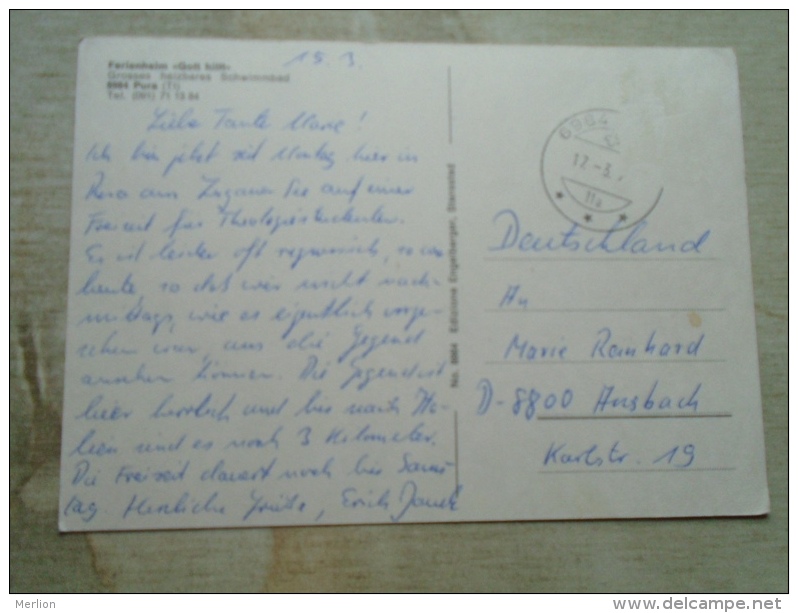 Ferienheim «Gott hilft»
Grosses heizbares Schwimmbad
6984 Pura (TI)
Tel. (091) 71 13 84
15. 3.
Liebe Tante Marie!
Ich bin jetzt seit Montag hier in
Pura am Luganer See auf einer
Freizeit für Theologiestudenten.
Es ist leider oft regnerisch, so
heute, so daß wir nicht nach-
mittags, wie es eigentlich vorge-
sehen war, uns die Gegend
ansehen können. Die Gegend ist
hier herrlich und bis nach Ita-
lien sind es noch 3 Kilometer.
Die Freizeit dauert noch bis Sams-
tag Herzliche Grüße, Erich
No. 6984 Edizione Engelberger, Stansstad
6984
17.-3.
11a
Deutschland
An
Marie Reinhard
D-8800 Ansbach
Karlstr. 19
Merlion
www.delcampe.net